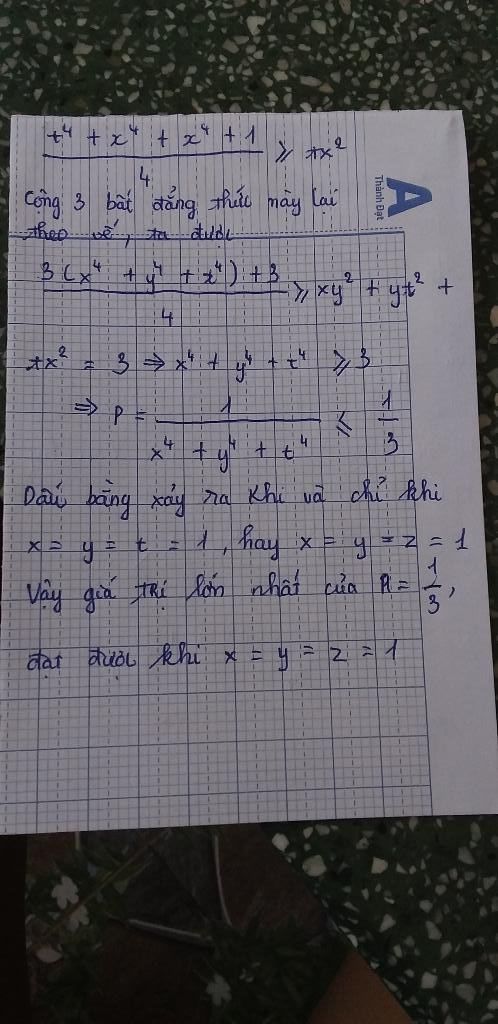 t⁴ + x⁴ + x⁴ + 1 / 4 ⩾ tx²
Cộng 3 bất đẳng thức này lại
theo vế, ta được
3(x⁴ + y⁴ + t⁴) + 3 / 4 ⩾ xy² + yt² +
tx² = 3 ⇒ x⁴ + y⁴ + t⁴ ⩾ 3
⇒ P = 1 / x⁴ + y⁴ + t⁴ ⩽ 1/3
Dấu bằng xảy ra khi và chỉ khi
x = y = t = 1, hay x = y = z = 1
Vậy giá trị lớn nhất của A = 1/3,
đạt được khi x = y = z = 1
A
Thành Đạt